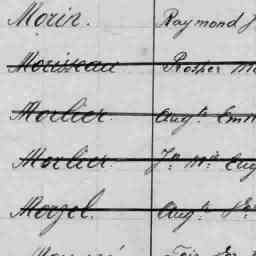 Morin. Raymond J
Morisseau Prosper
Morlier. Augte Emm
Morlier. Jn Mie Eug
Morzel. Augte